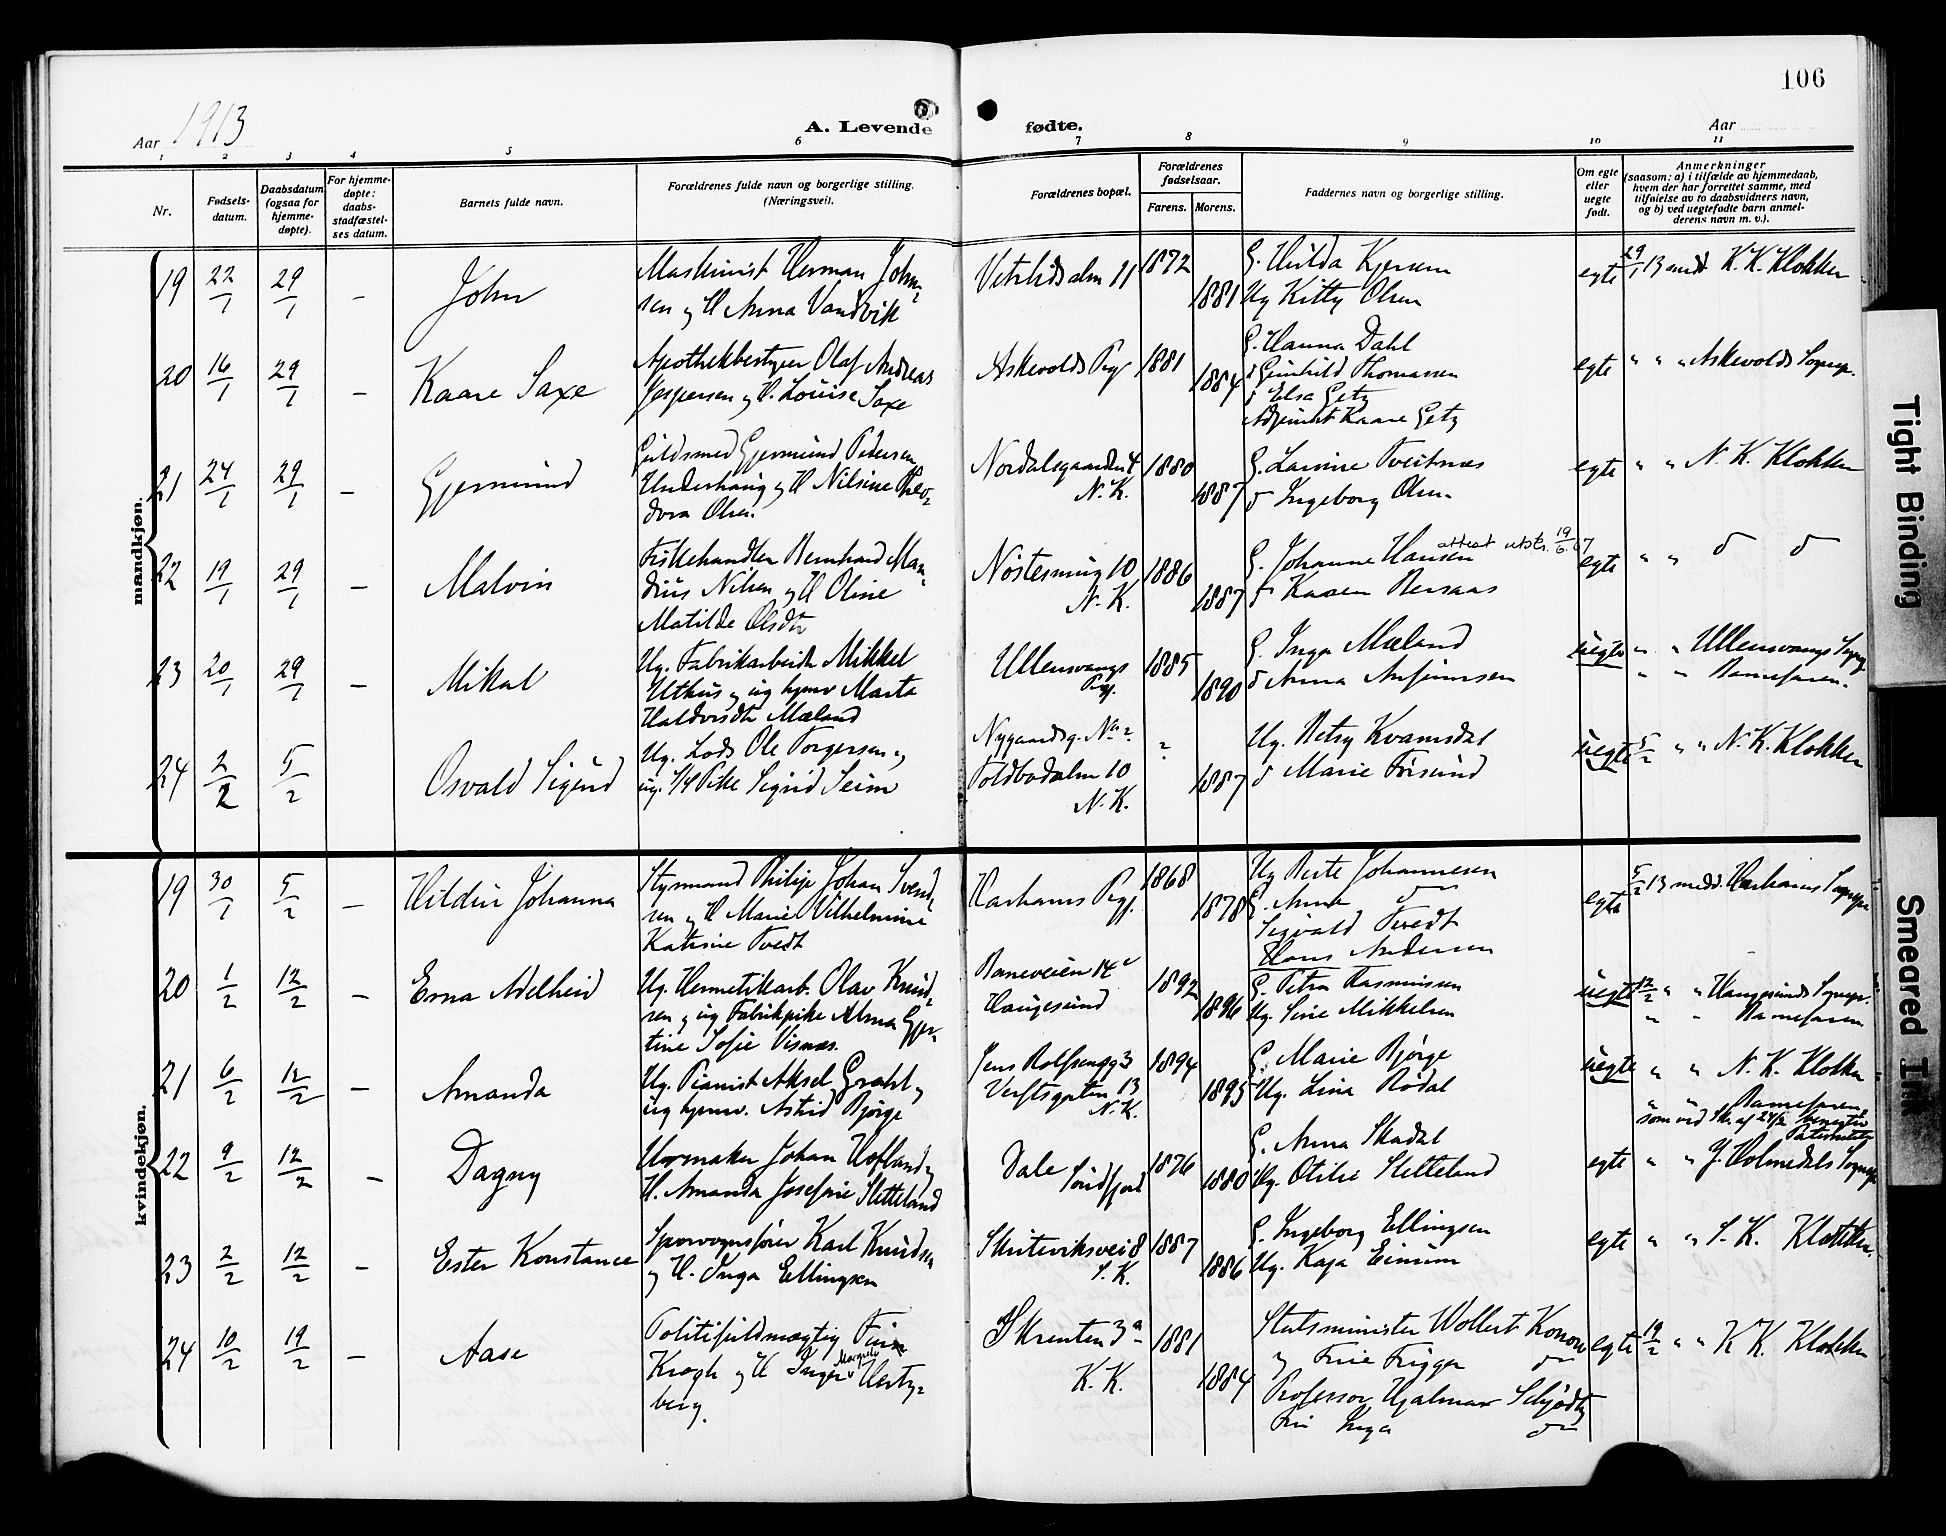 106
Aar 1913
A. Levende fødte.
Aar
1 2 3 4 5 6 7 8 9 10 11
Nr.
Fødsels-
datum.
Daabsdatum
(ogsaa for
hjemme-
døpte).
For hjemme-
døpte:
daabs-
stadfæstel-
ses datum.
Barnets fulde navn.
Forældrenes fulde navn og borgerlige stilling.
(Næringsvei).
Forældrenes bopæl.
Forældrenes
fødselsaar.
Farens. Morens.
Faddernes navn og borgerlige stilling.
Om egte
eller
uegte
født.
Anmerkninger
(saasom: a) i tilfælde av hjemmedaab,
hvem der har forrettet samme, med
tilføielse av to daabsvidners navn,
og b) ved uegtefødte barn anmel-
derens navn m. v.).
mandkjøn.
19 22/1 29/1 – John
Maskinist Herman John-
sen og H Anna Vandvik
Vetrlidsalm 11 1872 1881
G. Hilda Kjersem
Ug Kitty Olsen
egte 29/1 13 medd K.K. Klokker
20 16/1 29/1 – Kaare Saxe
Apothekbestyrer Olaf Andreas
Jespersen og H. Louise Saxe
Askevolds Pgj 1881 1884
G. Hanna Dahl
d Gunhild Thomassen
d Elsa Getz
Adjunkt Kaare Getz
egte " " " Askevolds Sognep.
21 24/1 29/1 – Gjermund
Guldsmed Gjermund Petersen
Underhaug og H Nilsine Theo-
dora Olsen.
Nordalsgaarden 4
N.K.
1880 1887
G. Lavine Tveitnæs
d Ingeborg Olsen
egte " " N. K. Klokker
22 19/1 29/1 – Malvin
Fiskehandler Bernhard Man-
dius Nilsen og H Oline
Matilde Olsdtr
Nøstesmug 10
N.K.
1886 1887
attest utst. 19/6.67
G. Johanne Hansen
d Karen Rersaas
egte " " d d
23 20/1 29/1 – Mikal
Ug. Fabrikarbeider Mikkel
Uthus og ug hjemv Marta
Haldorsdtr Mæland
Ullensvangs
Pgj.
1885 1890
G. Inga Mæland
d Anna Anfinnsen
uegte " " Ullensvangs Sognep
" " Barnefaren.
24 2/2 5/2 Osvald Sigurd
Ug. Lods Ole Torgersen og
ug. Pike Sigrid Seim
Nygaardsg. No 2
Toldbodalm 10
N.K.
? 1887
Ug. Betsy Kvamsdal
d Marie Fosund
uegte 5/2 " " N. K. Klokker
kvindekjøn.
19 30/1 5/2 – Hildur Johanna
Styrmand Philip Johan Svend-
sen og H Marie Vilhelmine
Katrine Tvedt
Harhams Pgj. 1868 1878
Ug Berte Johannesen
G. Anna d
Sigvald Tvedt
Hans Andersen
egte 5/2 13 medd. Harhams Sognepr
20 1/2 12/2 – Erna Adelheid
Ug. Hermetikarb. Olav Knud-
sen og ug Fabrikpike Alma Gjer-
tine Sofie Visnæs.
Baneveien 14
Haugesund
1892 1896
G. Petra Rasmussen
Ug. Sine Mikkelsen
uegte 12/2 " " Haugesunds Sognepr.
" " Barnefaren
21 6/2 12/2 – Amanda
Ug. Pianist Aksel Grahl og
ug hjemv. Astrid Bjørge
Jens Rolfsensg 3
Verftsgaten 13
N.K.
1894 1895
G. Marie Bjørge
Ug. Lina Rødal
uegte " " N. K. Klokker
" Barnefaren,
som ved Sk. af 24/2 benegter
Paternitety
22 9/2 12/2 – Dagny
Urmaker Johan Hofland og
H. Amanda Josefine Sletteland
Dale
Søndfjord
1876 1880
G. Anna Skadal
Ug. Otilie Sletteland
egte " " Y. Holmedals Sognepr
23 2/2 12/2 – Ester Konstance
Sporvognsfører Karl Knudsen
og H. Inga Ellingsen
Skuteviksvei 8
S.K.
1887 1886
G. Ingeborg Ellingsen
Ug. Kaja Einum
egte " " S. K. Klokker.
24 10/2 19/2 – Aase
Politifuldmægtig Finn
Krogh og H Inger Margrete Hertz-
berg.
Skrenten 3a
K.K.
1881 1884
Statsminister Wollert Konow
og Frue Frigga d
Professor Hjalmar Schjødtz
Fru Inga d
egte 19/2 " " K K. Klokker
Tight Binding
Smeared Ink